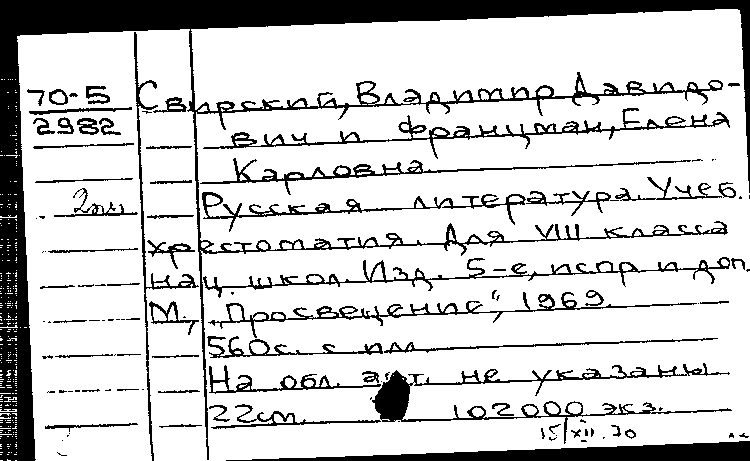 70-5 Свирский, Владимир Давидо-
2982 вич и Францман, Елена
Карловна
Русская литература. Учеб.
хрестоматия. Для VIII класса
нац. школ. Изд. 5-е, испр. и доп.
М., „Просвещение", 1969.
560с. с илл.
На обл. авт. не указаны
22см. 102000 экз.
15/XII.70